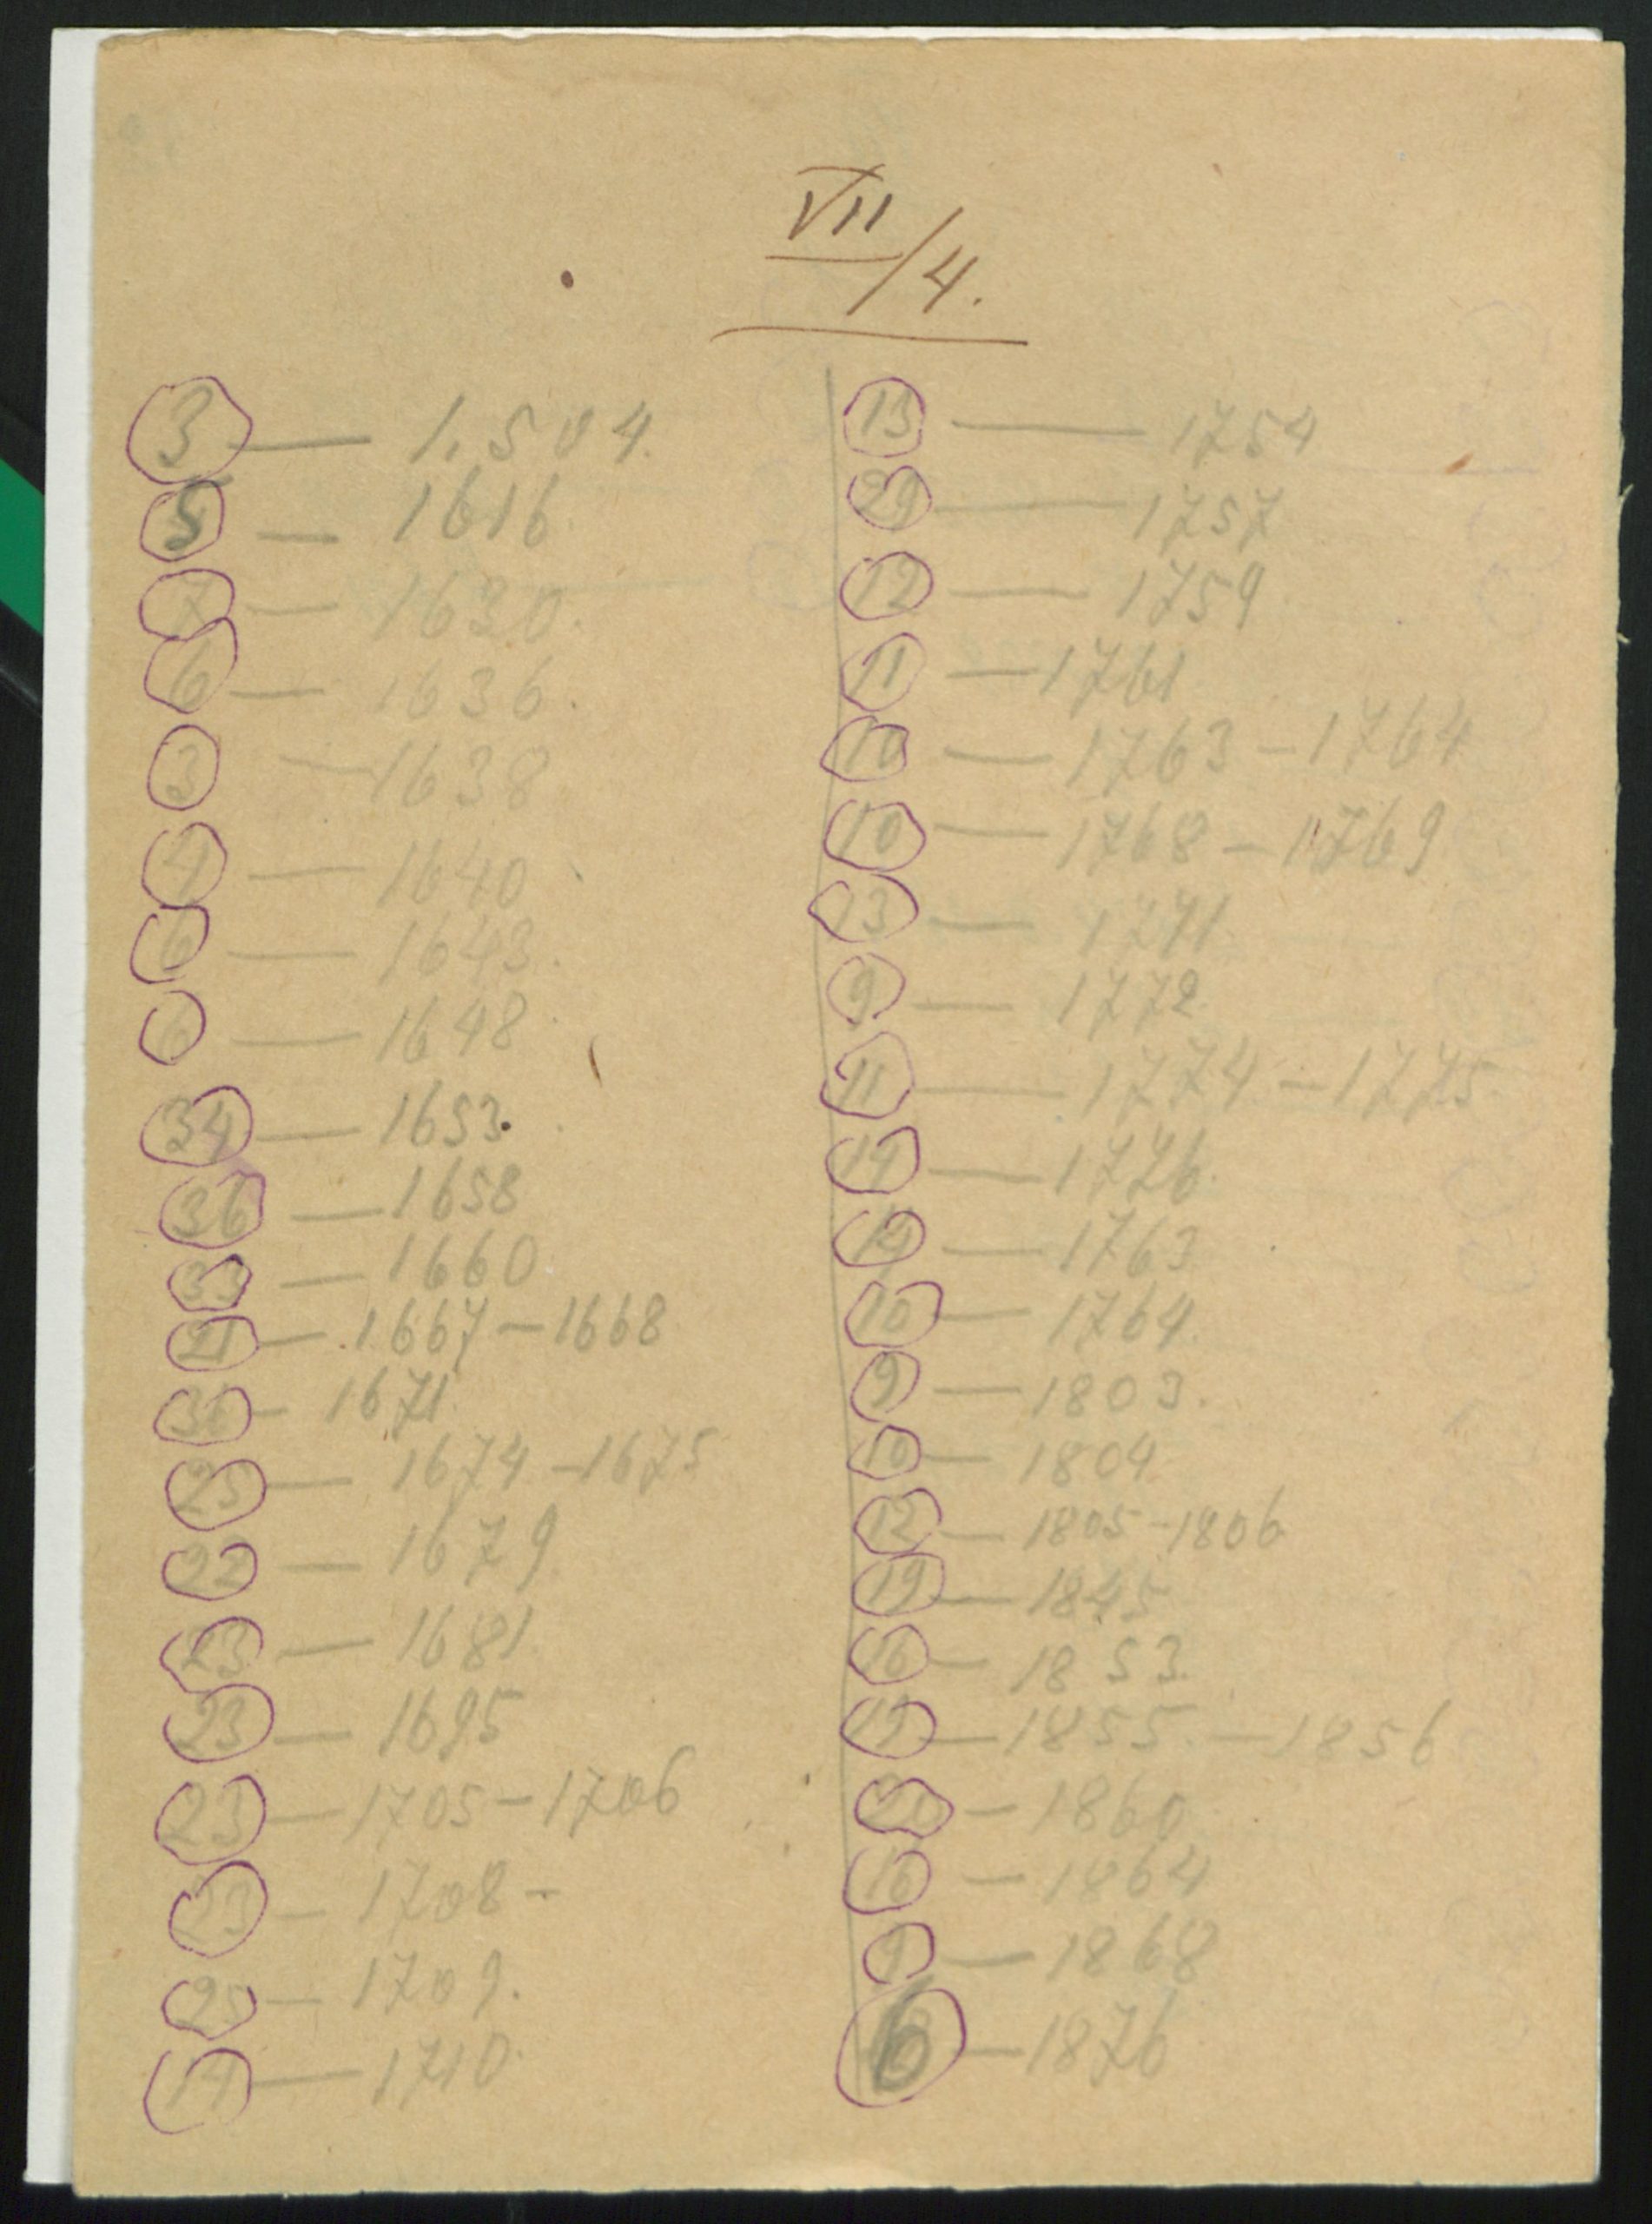 VII/4.
3 — 1.504.
5 — 1616
7 — 1630.
6 — 1636.
3 — 1638
4 — 1640
6 — 1643.
6 — 1648
34 — 1653.
36 — 1658
33 — 1660
21 — 1667-1668
36 — 1671
25 — 1674-1675
22 — 1679
23 — 1681
23 — 1695
23 — 1705-1706
23 — 1708-
25 — 1709.
14 — 1710
13 — 1754
29 — 1757
12 — 1759
11 — 1761
10 — 1763-1764
10 — 1768-1769
13 — 1771
9 — 1772
11 — 1774-1775
19 — 1776
19 — 1763
10 — 1764.
9 — 1803.
10 — 1804
12 — 1805-1806
19 — 1845
16 — 1853.
19 — 1855.-1856
20 — 1860
16 — 1864
9 — 1868
16 — 1876